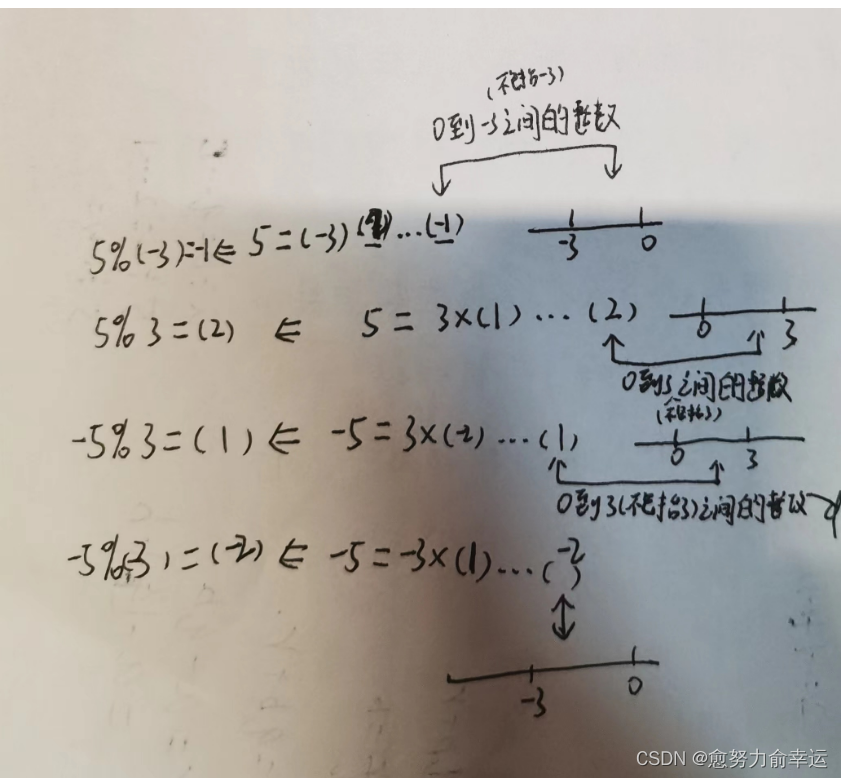 (不包括-3)
0到-3之间的整数
5%(-3)=-1⇐ 5=(-3) ... (-1)
-3 0
5%3=(2) ⇐ 5=3×(1)...(2)
0 3
0到3之间的整数
(不包括3)
-5%3=(1)⇐ -5=3×(-2)...(1)
0 3
0到3(不包括3)之间的整数
-5%(-3)=(-2)⇐ -5=-3×(1)...(-2)
-3 0
CSDN @愈努力俞幸运